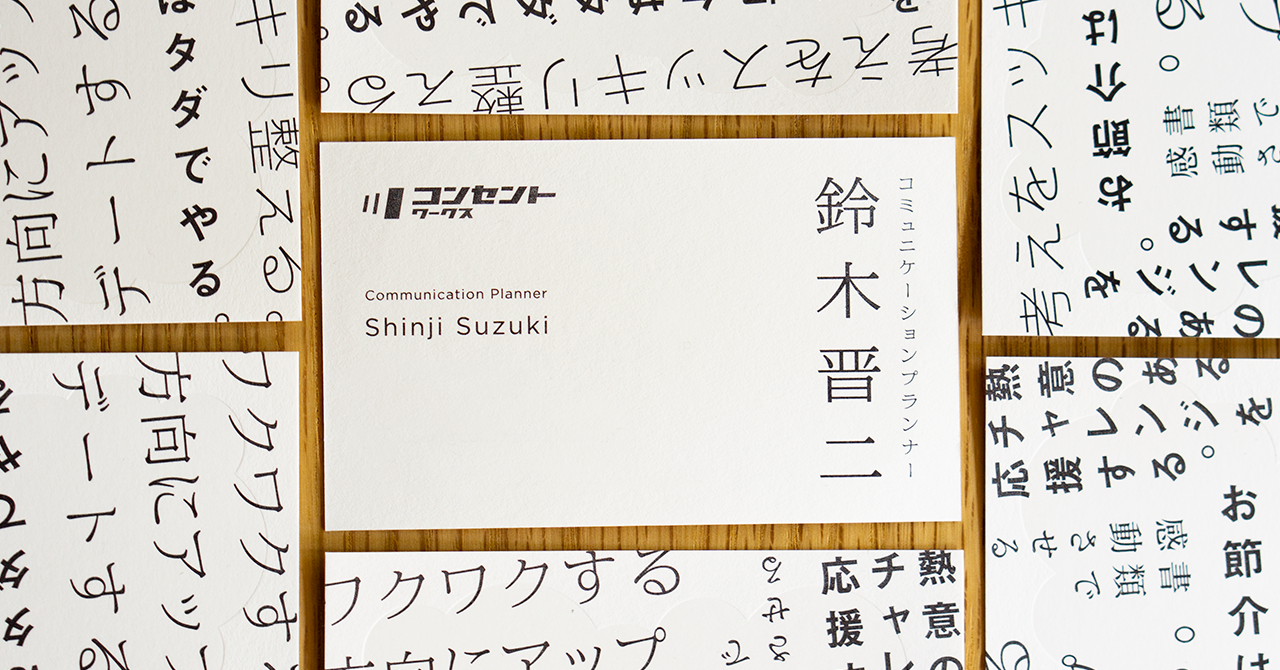 コンセント
ワークス
Communication Planner
Shinji Suzuki
コミュニケーションプランナー
鈴木晋二
考えをスッキリ整える。
はタダでやる。
デートする
方向にアッ
キリ整える。
考えをスッキ
お節介は
書類で
感動さ
する。
レンジ
のある
を
ワクワクす
方向にアップ
デートする
タダでや
フクワクする
方向にアップ
熱意の
チャレ
応援
させる
で
熱意のある
チャレンジを
応援する。
書類で
感動
させる
。
お節介は